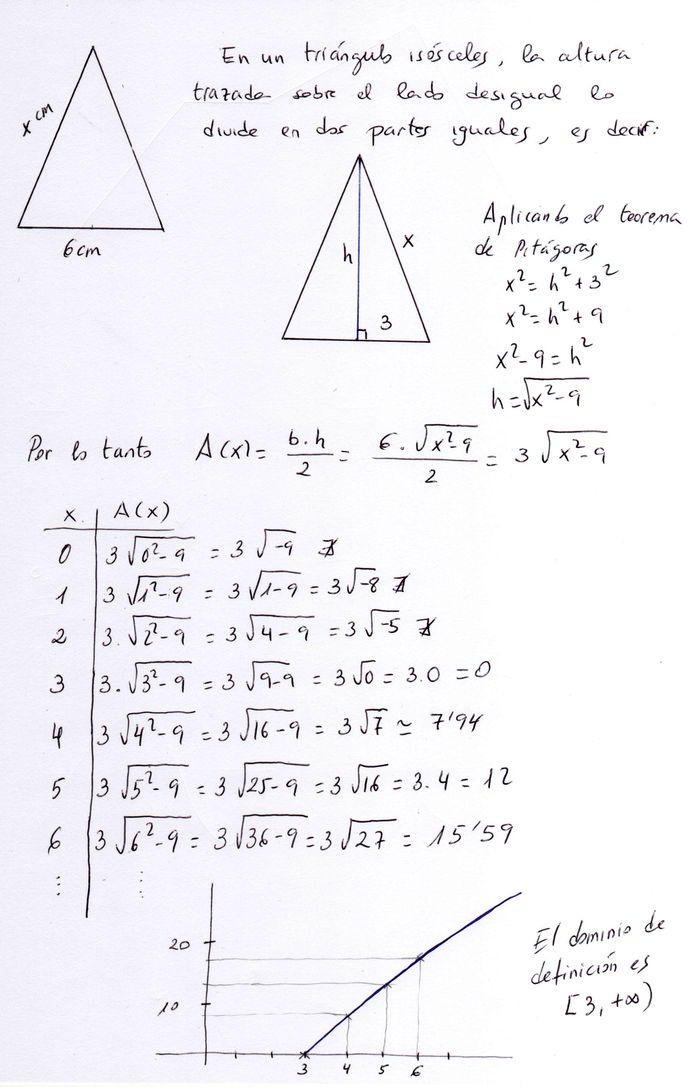 x cm
6 cm
En un triángulo isósceles, la altura
trazada sobre el lado desigual lo
divide en dos partes iguales, es decir:
h
x
3
Aplicando el teorema
de Pitágoras
x² = h² + 3²
x² = h² + 9
x² - 9 = h²
h = √(x² - 9)
Por lo tanto A(x) = b·h/2 = 6·√(x²-9)/2 = 3√(x²-9)
x | A(x)
0 | 3√(0²-9) = 3√-9 ∄
1 | 3√(1²-9) = 3√(1-9) = 3√-8 ∄
2 | 3·√(2²-9) = 3√(4-9) = 3√-5 ∄
3 | 3·√(3²-9) = 3√(9-9) = 3√0 = 3·0 = 0
4 | 3√(4²-9) = 3√(16-9) = 3√7 ≃ 7'94
5 | 3√(5²-9) = 3√(25-9) = 3√16 = 3·4 = 12
6 | 3√(6²-9) = 3√(36-9) = 3√27 = 15'59
⋮ | ⋮
20
10
3 4 5 6
El dominio de
definición es
[3, +∞)